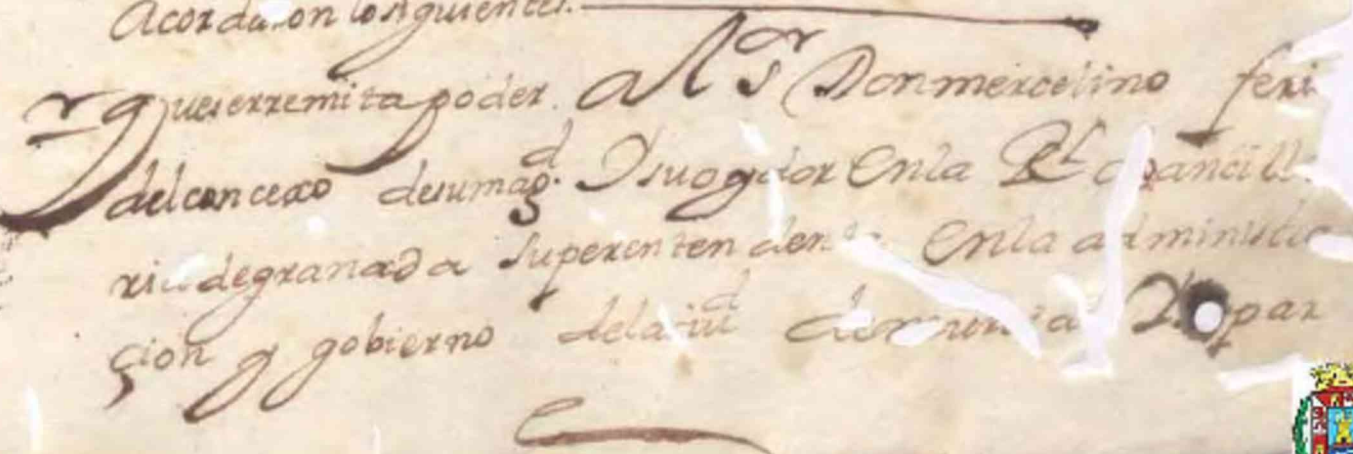 Acordaron los siguientes.
que se rremita poder. al Sr Don mercelino feri
del concexo de su magd. Y su oydor En la Rl chancill
ria de granada superentendente En la administra
çion y gobierno de la ciud de murcia Y par